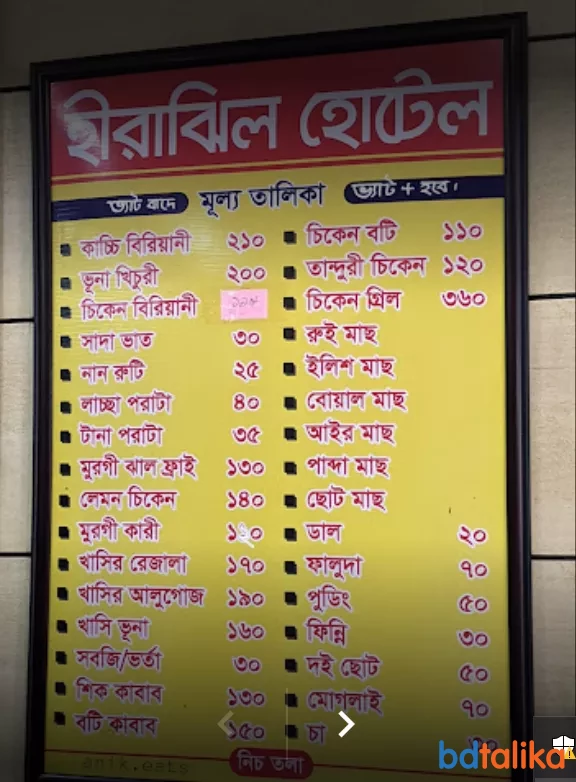 হীরাঝিল হোটেল
ভ্যাট বাদে মূল্য তালিকা ভ্যাট + হবে।
কাচ্চি বিরিয়ানী ২১০
ভূনা খিচুরী ২০০
চিকেন বিরিয়ানী
সাদা ভাত ৩০
নান রুটি ২৫
লাচ্ছা পরাটা ৪০
টানা পরাটা ৩৫
মুরগী ঝাল ফ্রাই ১৩০
লেমন চিকেন ১৪০
মুরগী কারী
খাসির রেজালা ১৭০
খাসির আলুগোজ ১৯০
খাসি ভূনা ১৬০
সবজি/ভর্তা ৩০
শিক কাবাব ১৩০
বটি কাবাব ১৫০
চিকেন বটি ১১০
তান্দুরী চিকেন ১২০
চিকেন গ্রিল ৩৬০
রুই মাছ
ইলিশ মাছ
বোয়াল মাছ
আইর মাছ
পাব্দা মাছ
ছোট মাছ
ডাল ২০
ফালুদা ৭০
পুডিং ৫০
ফিন্নি ৩০
দই ছোট ৫০
মোগলাই ৭০
চা
নিচ তলা
anik.eats
bdtalika